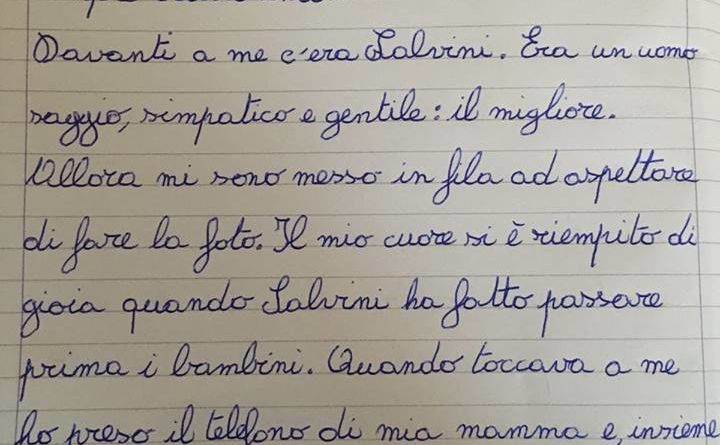 Davanti a me c'era Salvini. Era un uomo
saggio, simpatico e gentile: il migliore.
Allora mi sono messo in fila ad aspettare
di fare la foto. Il mio cuore si è riempito di
gioia quando Salvini ha fatto passare
prima i bambini. Quando toccava a me
ho preso il telefono di mia mamma e, insieme